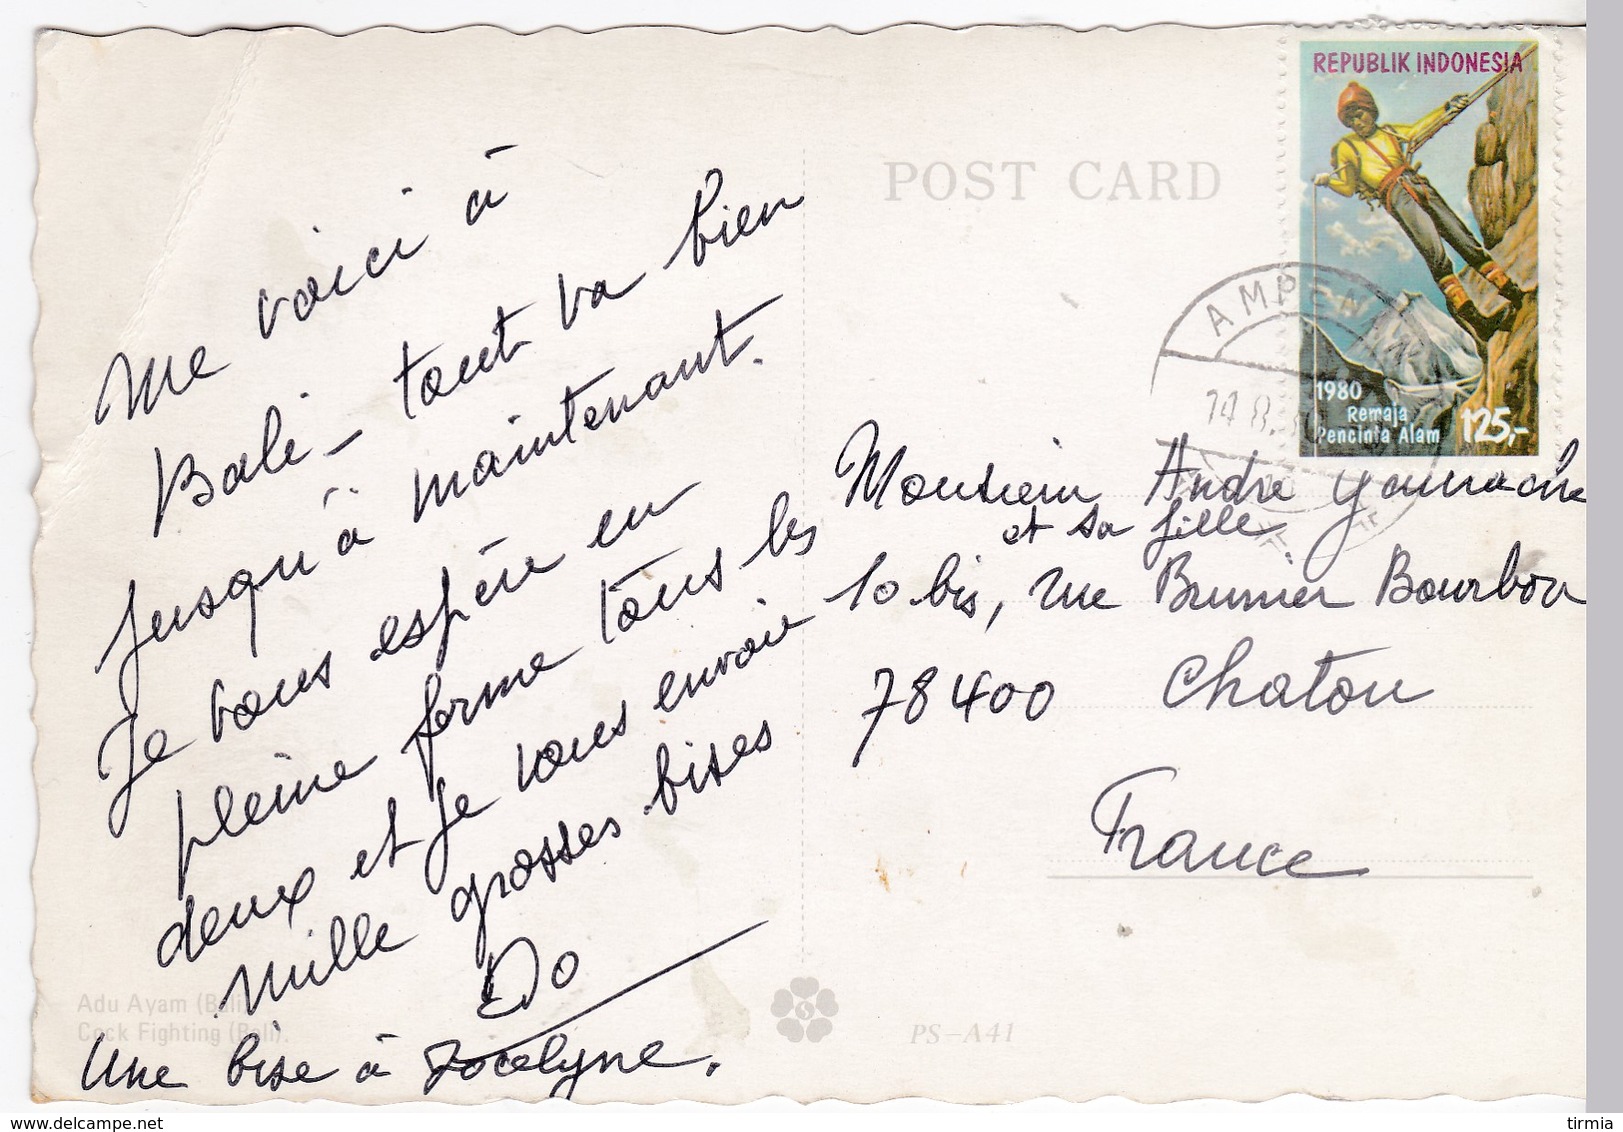 Me voici à
Bali - tout va bien
jusqu'à maintenant.
Je vous espère en
pleine forme tous les
deux et je vous envoie
mille grosses bises
Do
Une bise à Jocelyne.
Adu Ayam (Bali).
Cock Fighting (Bali).
POST CARD
REPUBLIK INDONESIA
1980
Remaja
Pencinta Alam
125,-
AMPENAN
14.8.80
Monsieur Andre
et sa fille
10 bis, rue Brunier Bourbon
78400 Chatou
France
PS-A41
delcampe.net
tirmia